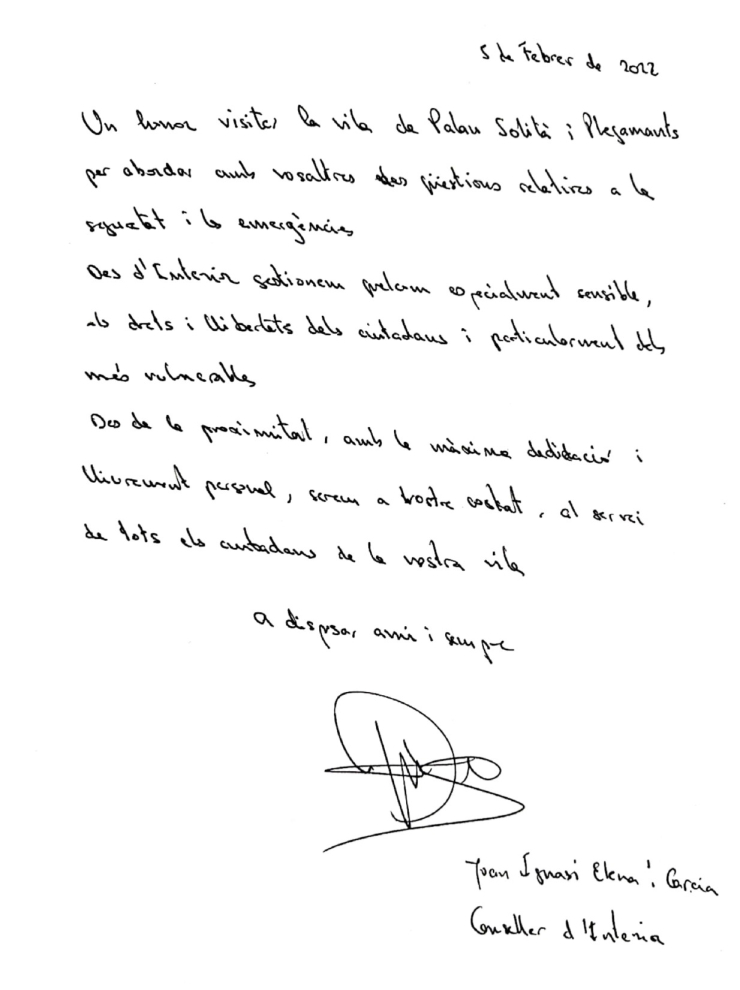 5 de Febrer de 2022
Un honor visitar la vila de Palau Solità i Plegamants
per abordar amb vosaltres les qüestions relatives a la
seguretat i les emergències
Des d'Interior gestionem quelcom especialment sensible,
els drets i llibertats dels ciutadans i particularment dels
més vulnerables
Des de la proximitat, amb la màxima dedicació i
lliurement personal, serem a vostre costat, al servei
de tots els ciutadans de la vostra vila
A disposar, avui i sempre
Joan Ignasi Elena i Garcia
Conseller d'Interior